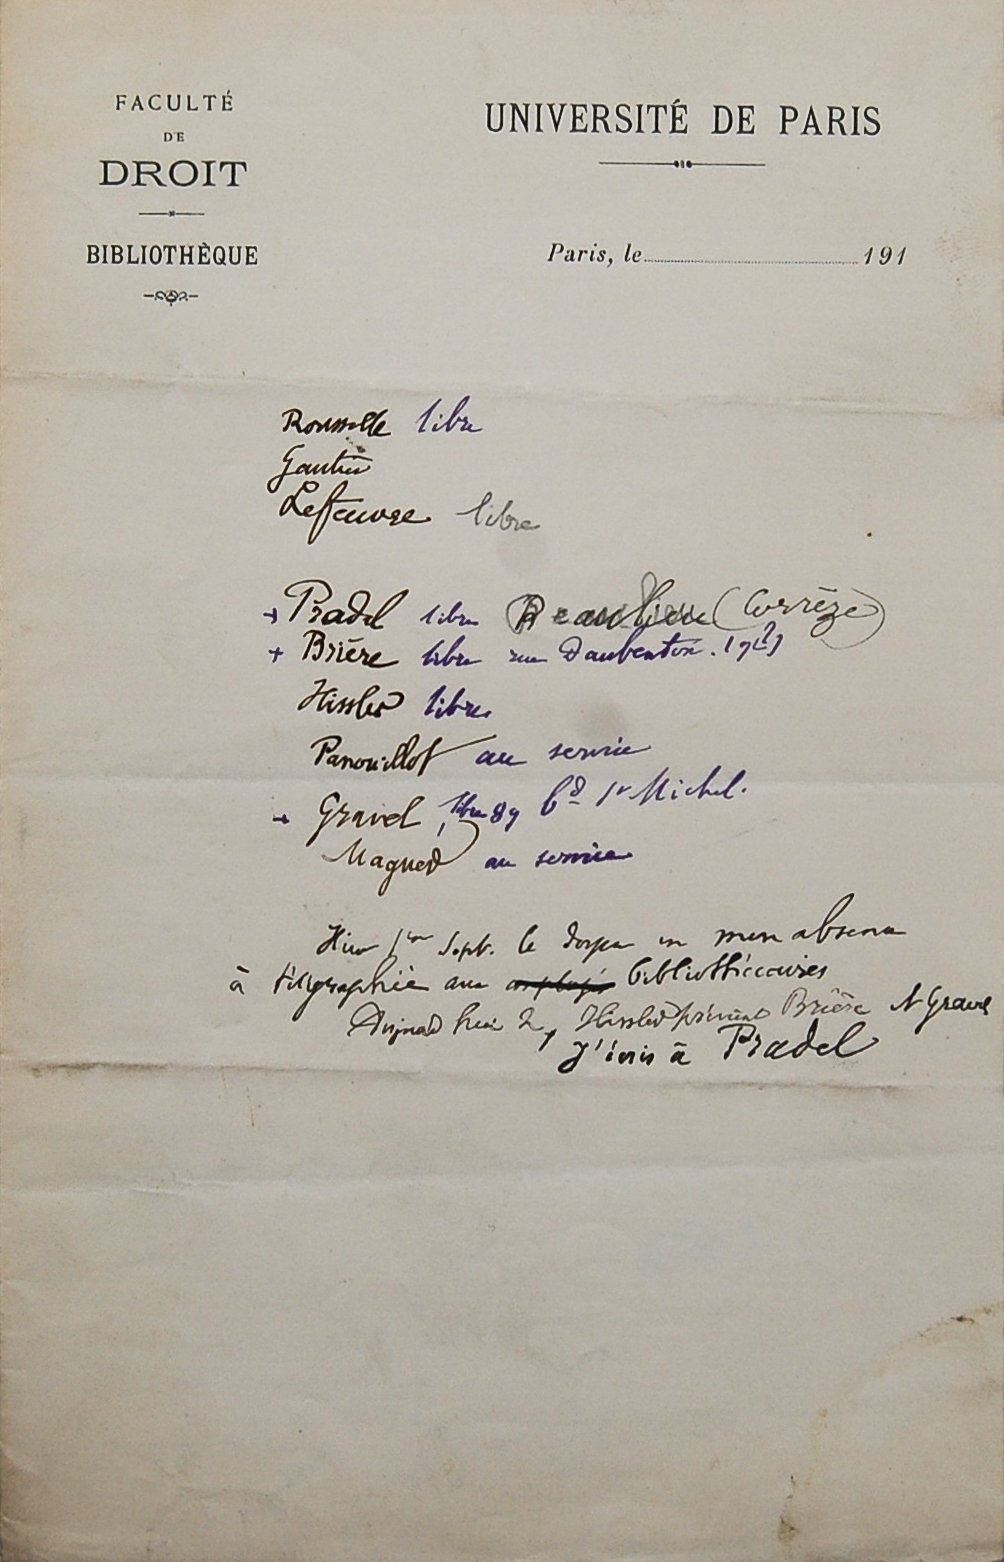 FACULTÉ
DE
DROIT
BIBLIOTHÈQUE
UNIVERSITÉ DE PARIS
Paris, le 191
Rousselle libre
Gautier
Lefeuvre libre
+ Pradel libre Beaulieu (Corrèze)
+ Brière libre rue Daubenton. 19(?)
Hissler libre
Panouillot au service
+ Gravel, libre 89 bd St Michel.
Magued au service
Hier 1er Sept. le doyen en mon absence
à télégraphié aux employés bibliothécaires
Aujourd'hui 2, Hissler prévient Brière et Gravel
J'écris à Pradel